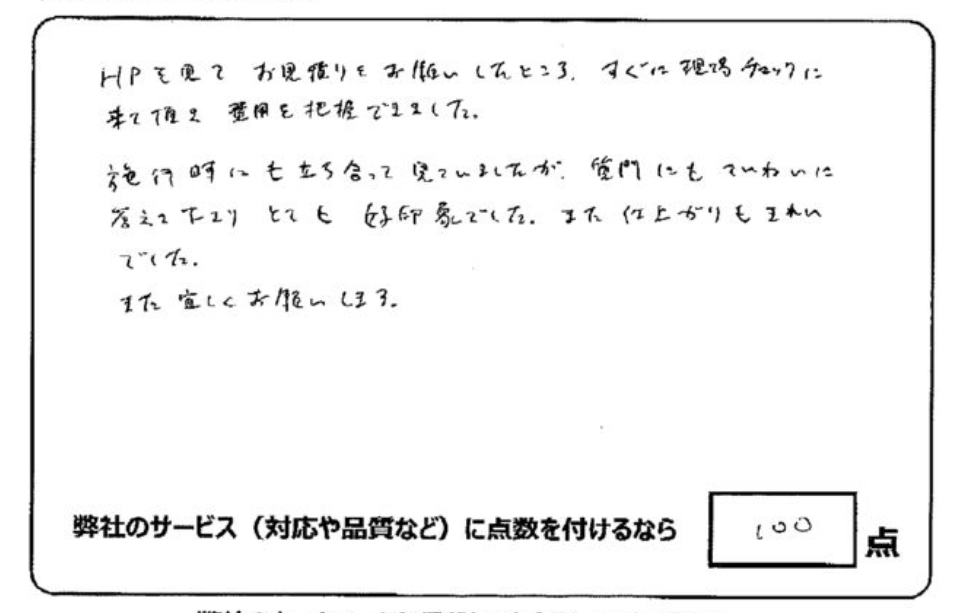 HPを見て お見積りを お願いしたところ、すぐに現場チェックに
来て頂き 費用を把握できました。
施行時にも立ち合って見ていましたが、質問にもていねいに
答えて下さり とても 好印象でした。また 仕上がりもきれい
でした。
また宜しくお願いします。
弊社のサービス（対応や品質など）に点数を付けるなら 100 点